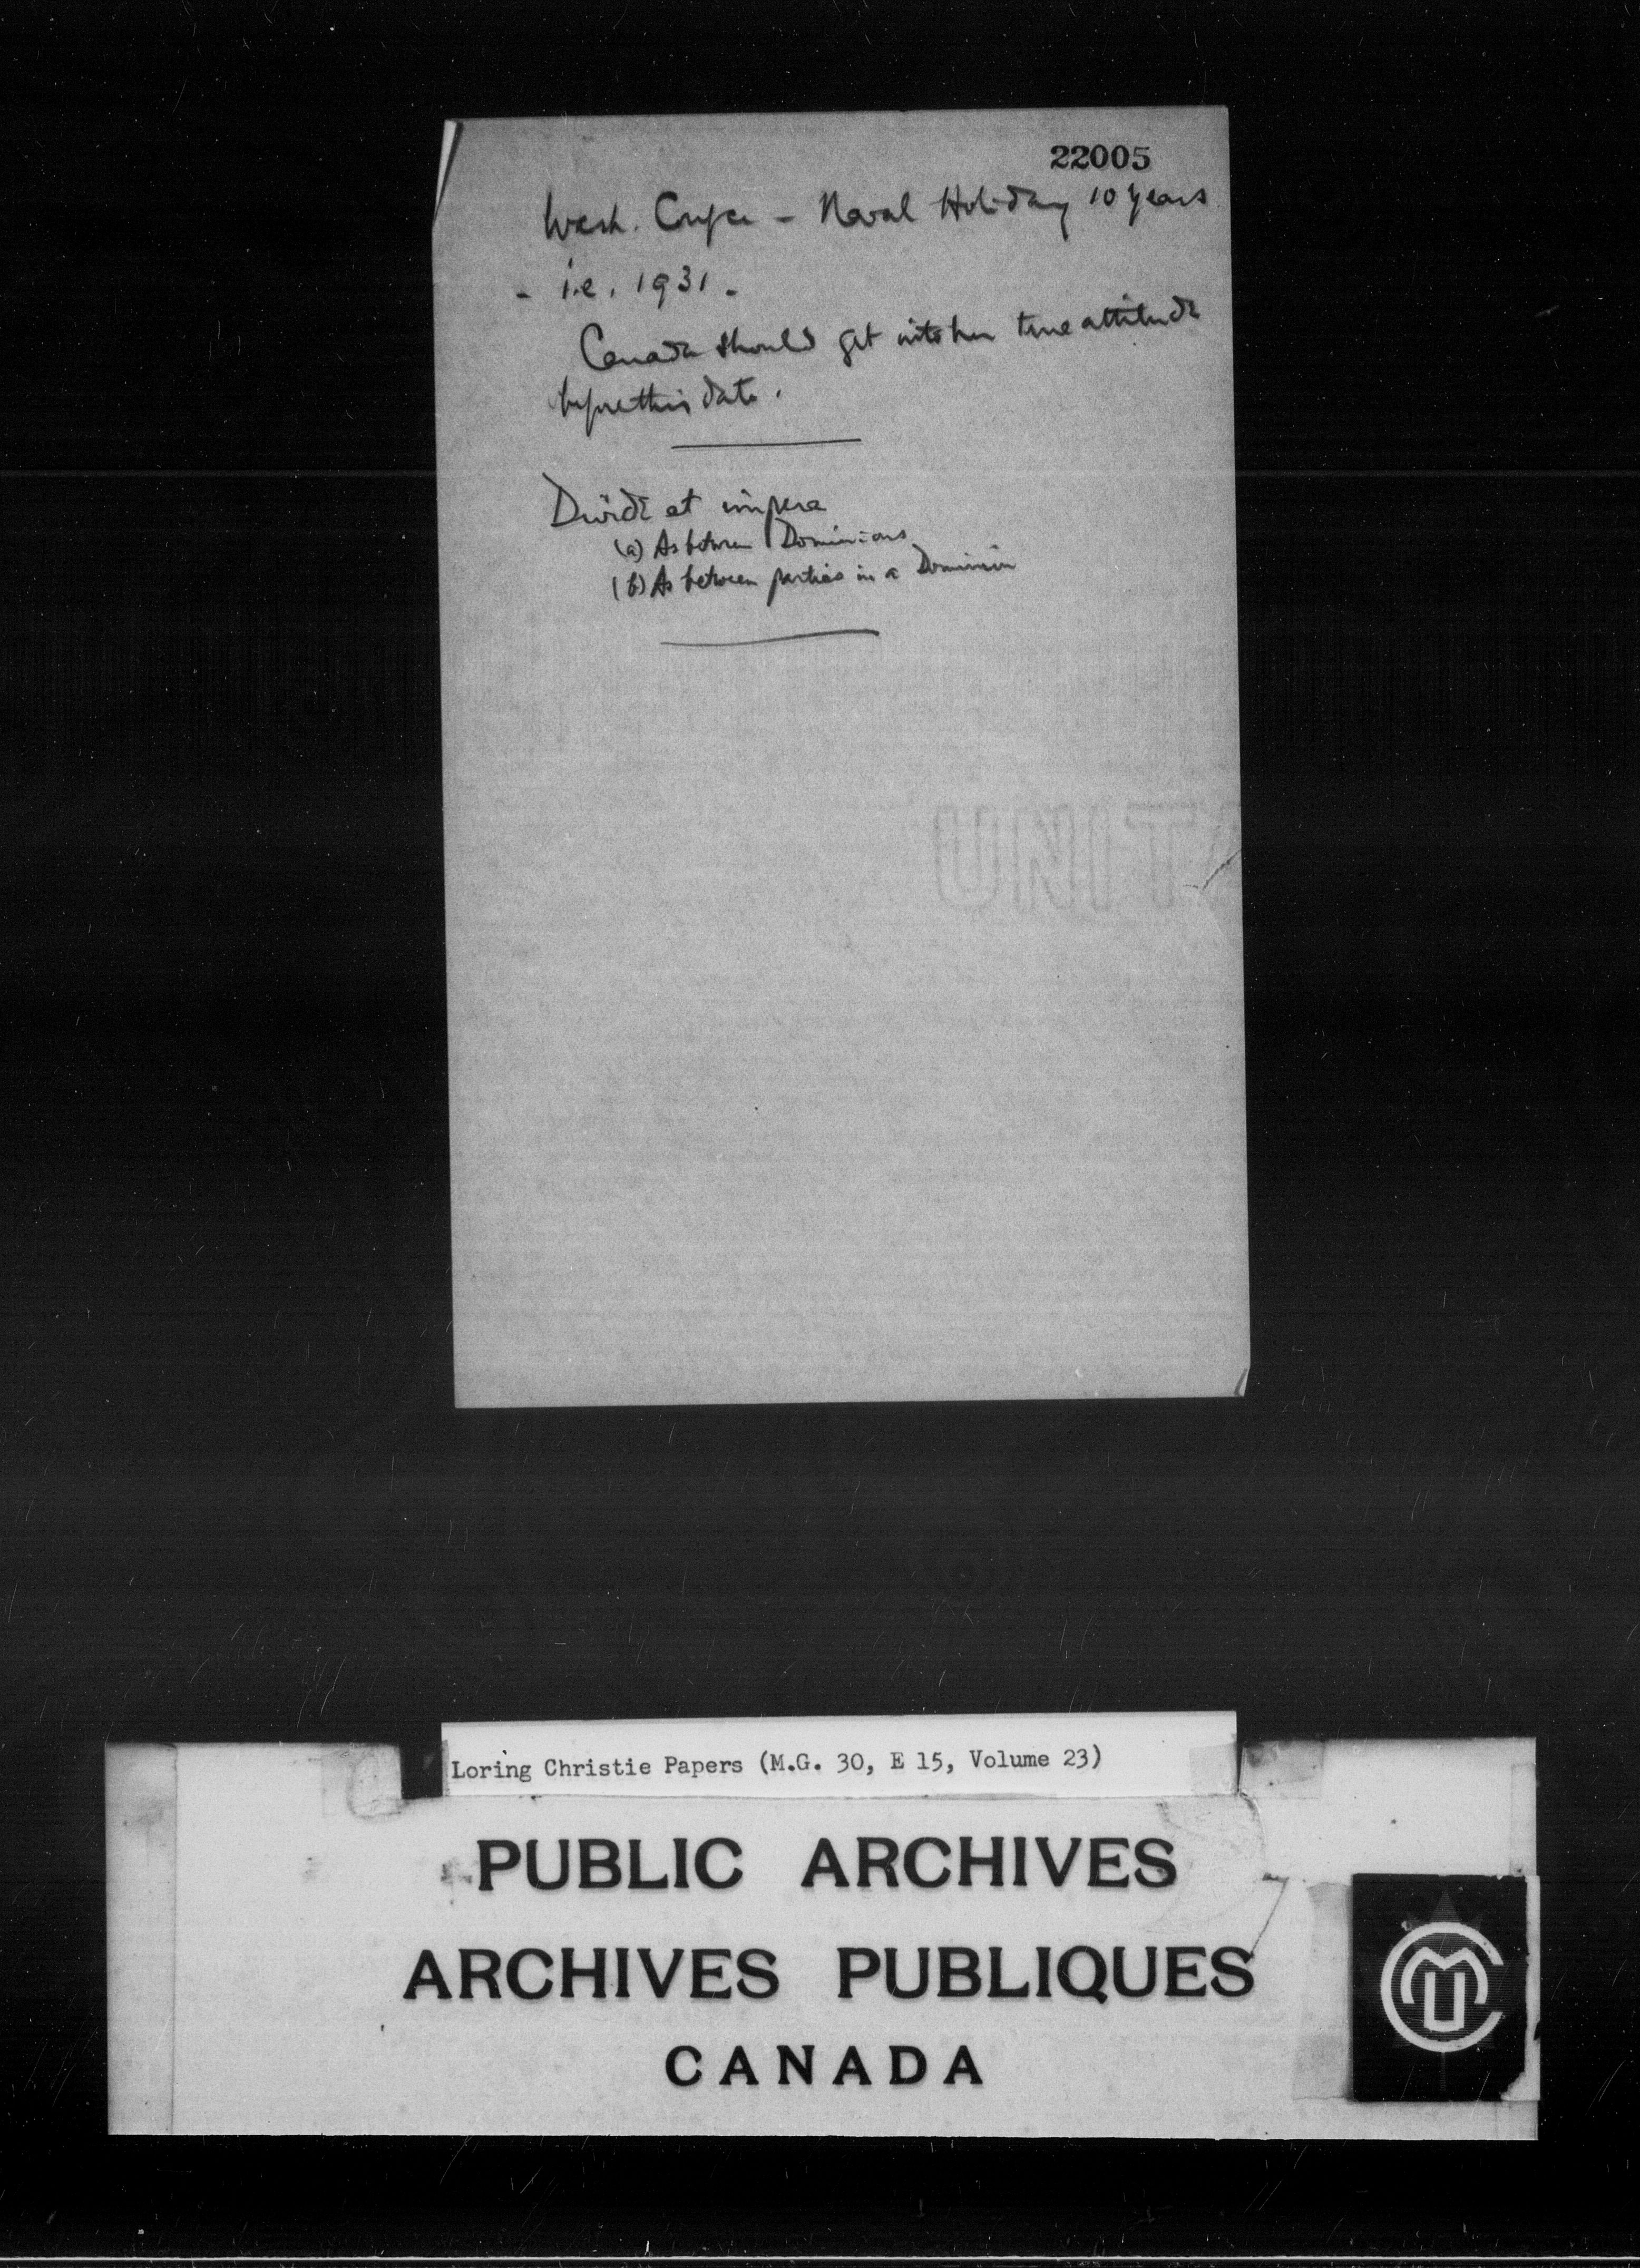 22005
Wash. Confce - Naval Holiday 10 years
- i.e. 1931.
Canada should get into her true attitude
before this date.
Divide et impera
(a) As between Dominions
(b) As between parties in a Dominion
UNIT
Loring Christie Papers (M.G. 30, E 15, Volume 23)
PUBLIC ARCHIVES
ARCHIVES PUBLIQUES
CANADA